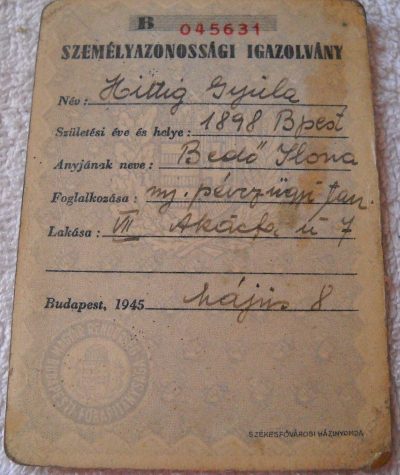 B 045631
SZEMÉLYAZONOSSÁGI IGAZOLVÁNY
Név: Hittig Gyula
Születési éve és helye: 1898 Bpest
Anyjának neve: Bedő Ilona
Foglalkozása: ny. pénzügyi tan.
Lakása: VII Akácfa ú 7
Budapest, 1945 Május 8
SZÉKESFŐVÁROSI HÁZINYOMDA